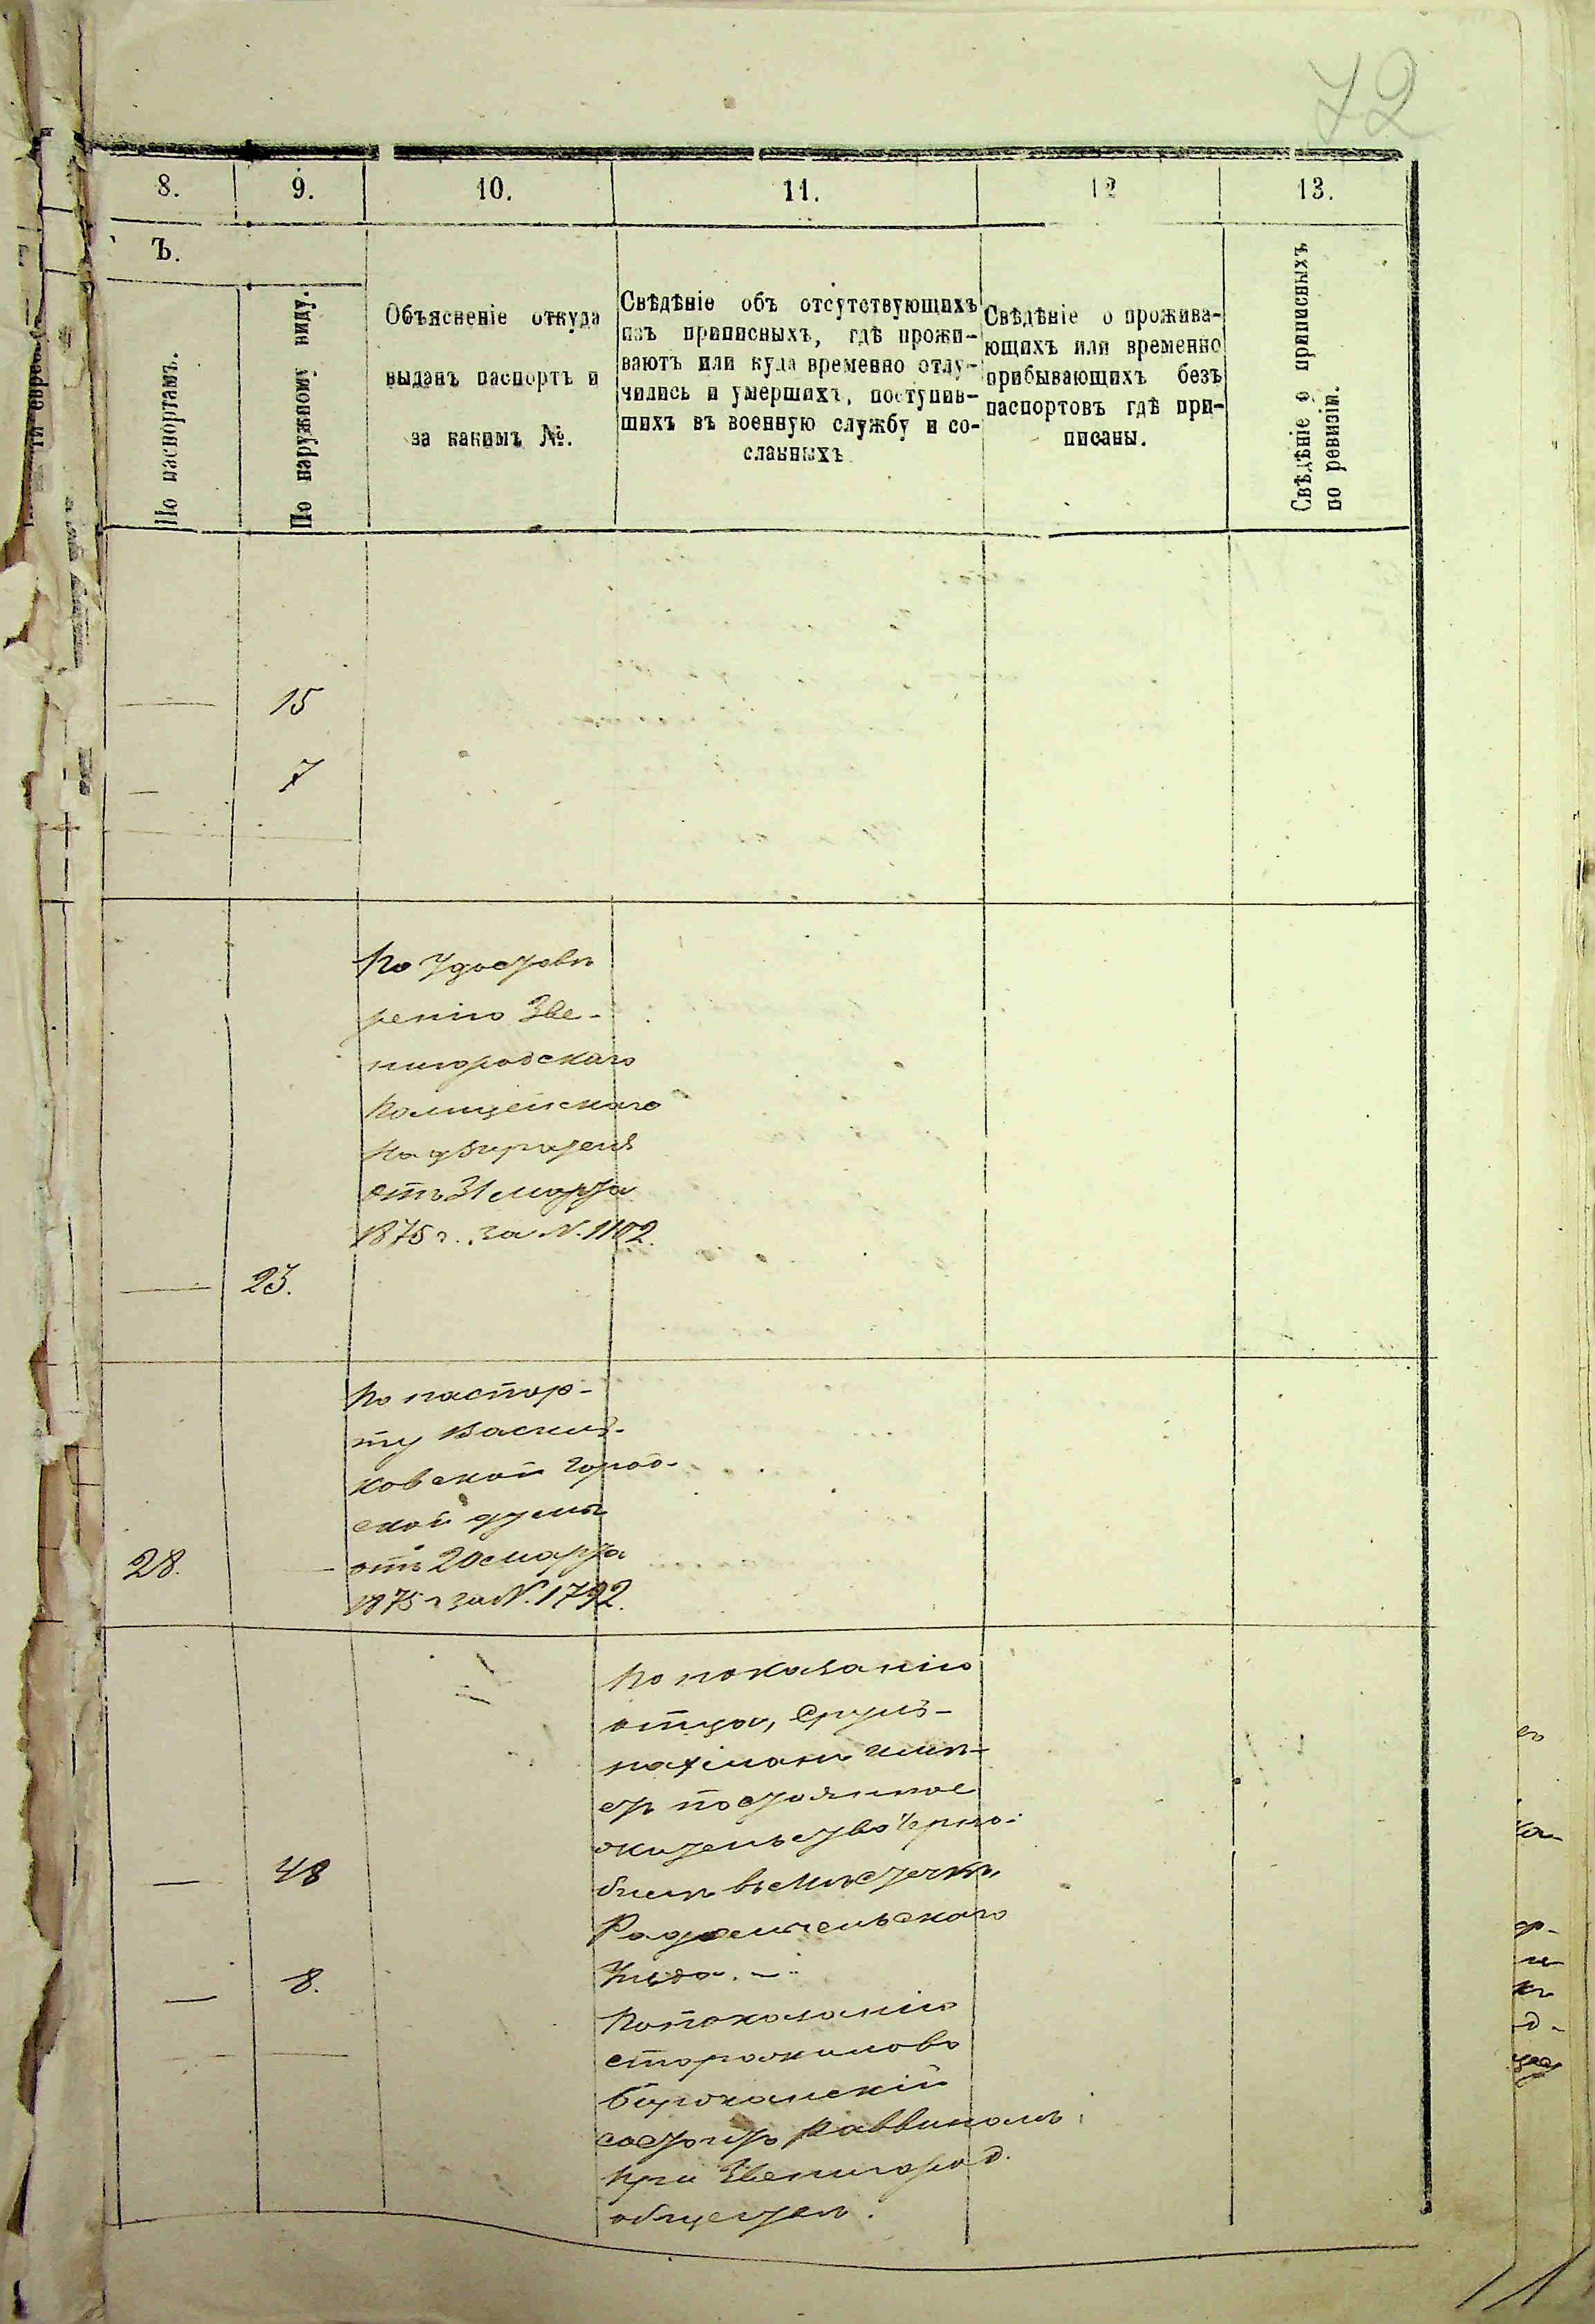 72
8. 9. 10. 11. 12 13.
Ъ.
По паспортамъ.
По наружному виду.
Объясненіе откуда
выданъ паспортъ и
за какимъ №.
Свѣдѣніе объ отсутствующихъ
изъ приписныхъ, гдѣ прожи-
ваютъ или куда временно отлу-
чились и умершихъ, поступив-
шихъ въ военную службу и со-
сланныхъ
Свѣдѣніе о прожива-
ющихъ или временно
прибывающихъ безъ
паспортовъ гдѣ при-
писаны.
Свѣдѣніе о приписныхъ
по ревизіи.
— 15
— 7
По удостовѣ
ренію Зве-
нигородскаго
Полицейскаго
Надзирателя
отъ 31 марта
1875 г. за N. 1102.
— 23.
По паспор-
ту Василь-
ковской город-
ской думы
28. — отъ 20 марта
1875 г за N. 1792.
По показанію
отца, Сруль-
нахманъ имѣ-
етъ постоянное
жительство Черно-
— 48
былѣ въ мѣстечкѣ,
Радомысльскаго
— 8.
Уѣзда. —
По показанію
старожиловъ
состоитъ Раввиномъ
при Звенигород.
обществѣ.